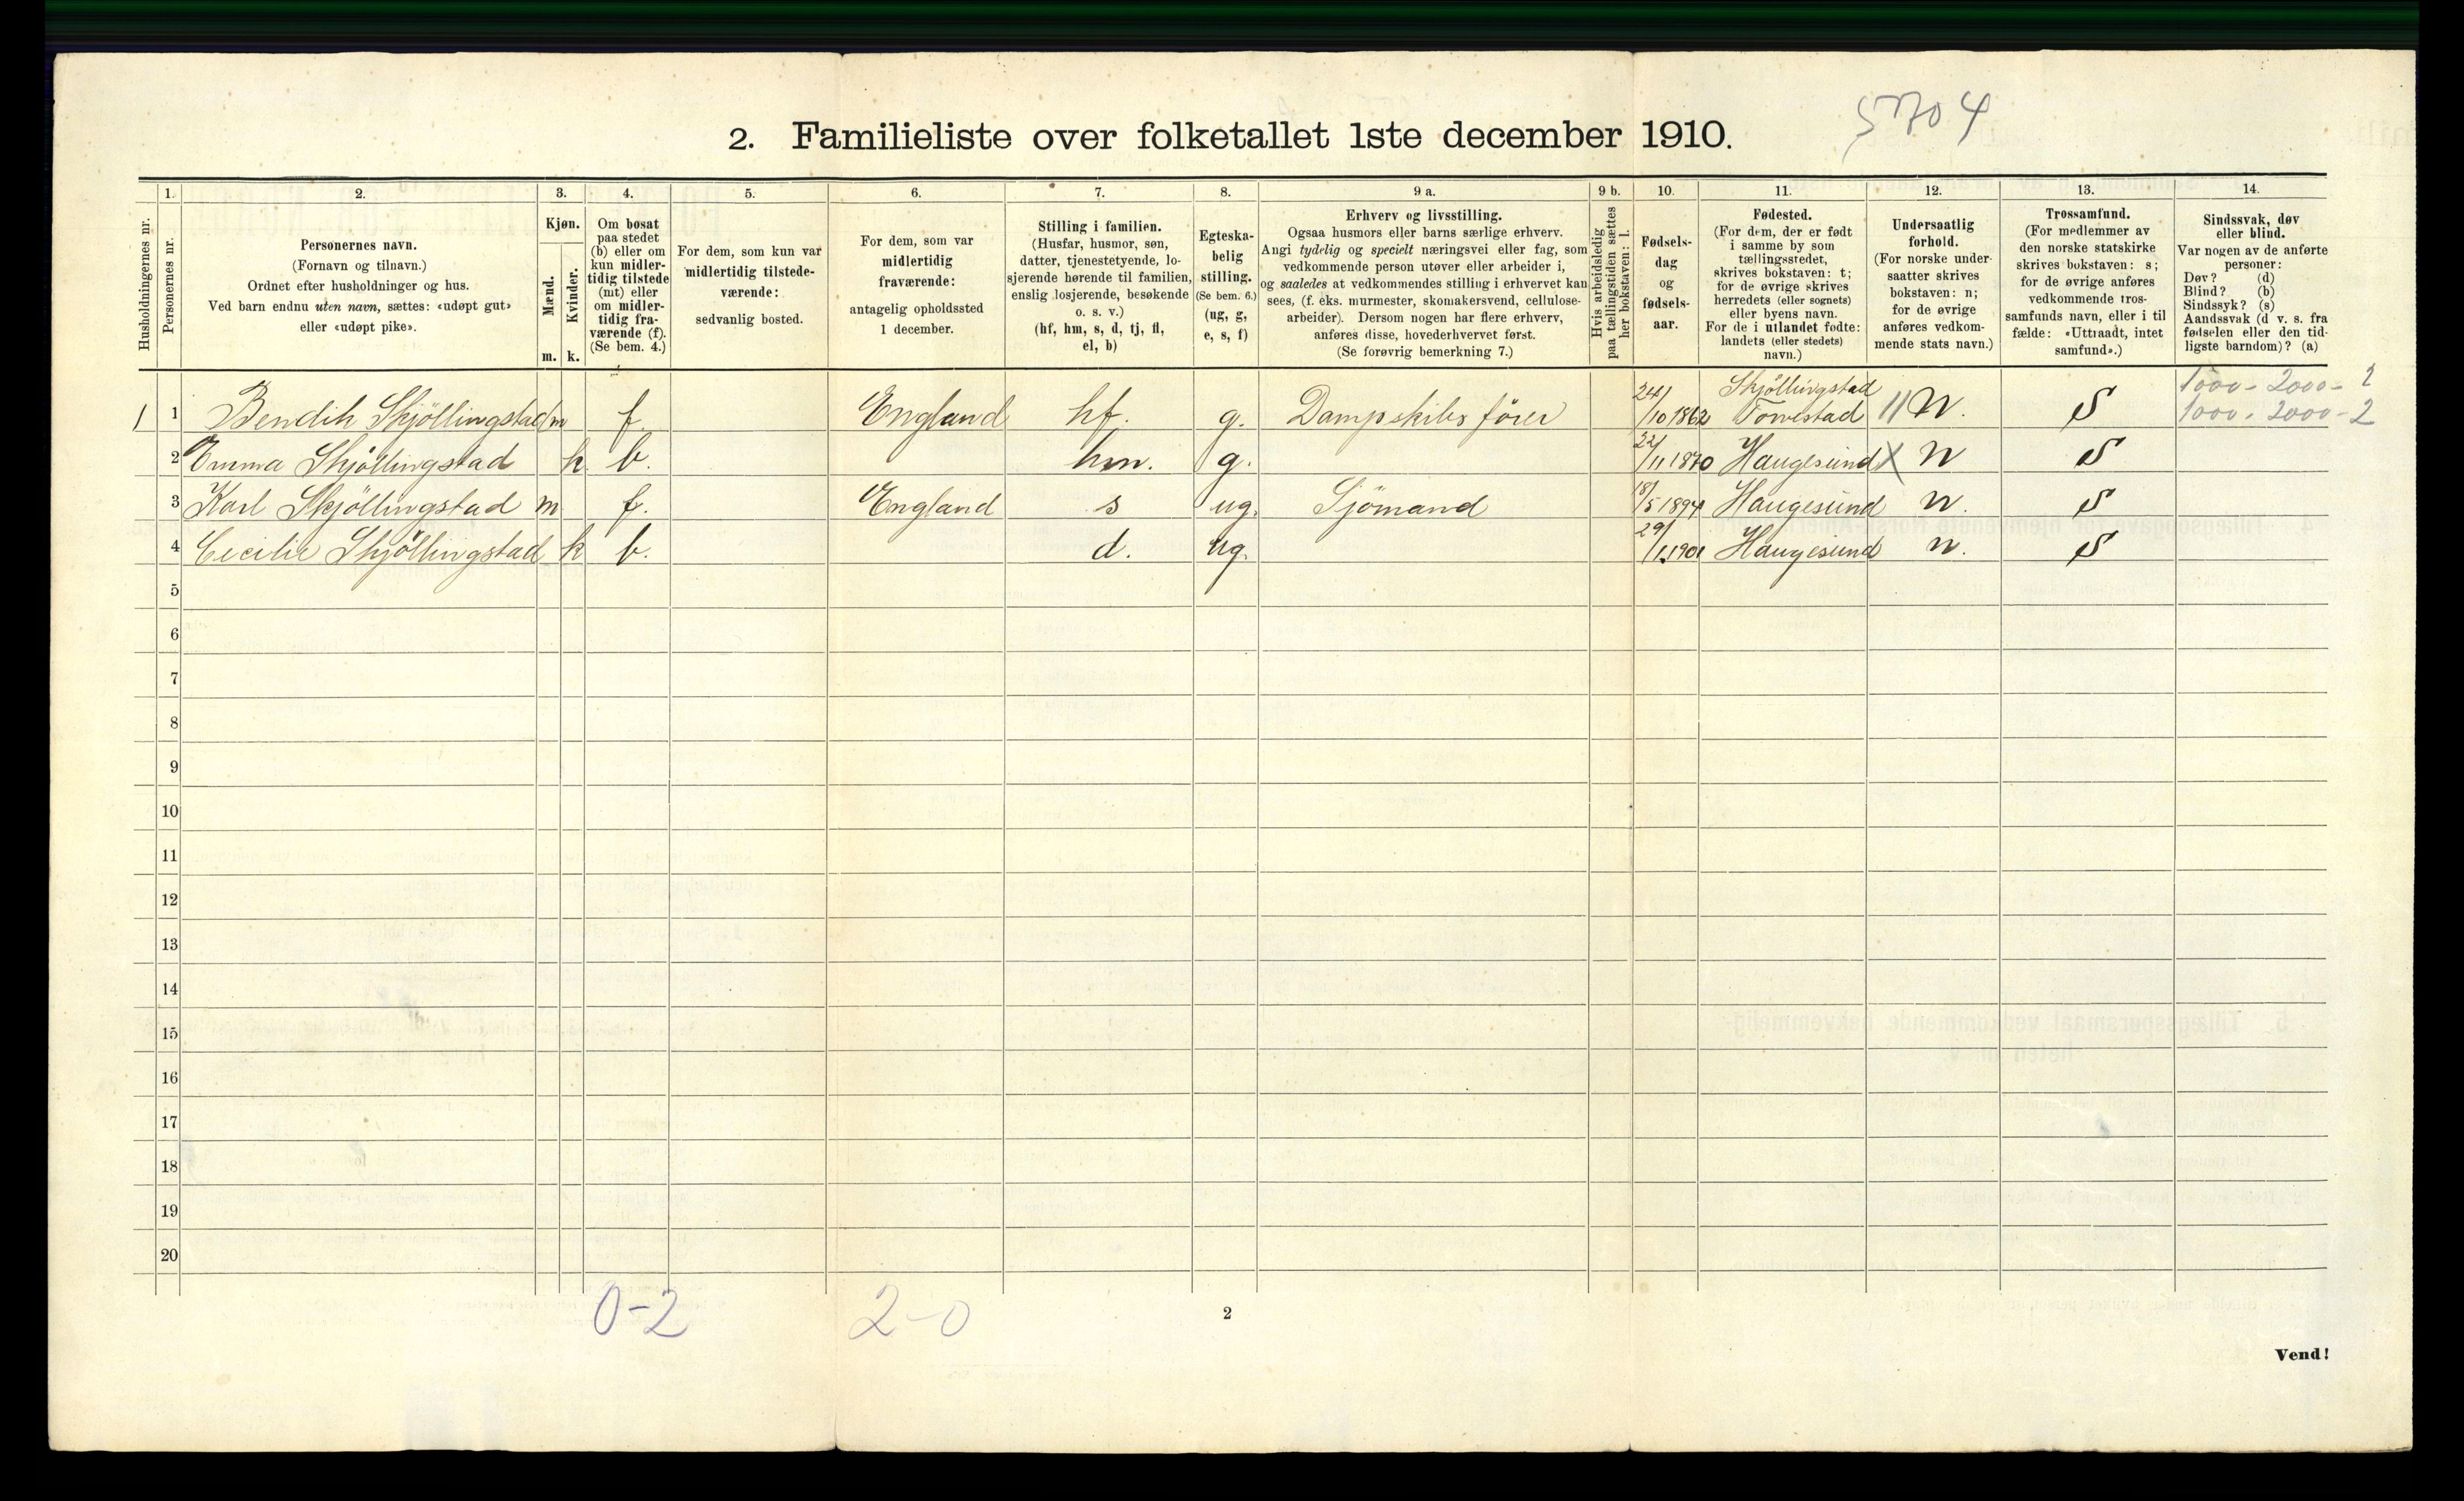 5704
2. Familieliste over folketallet 1ste december 1910.
1. 2. 3. 4. 5. 6. 7. 8. 9 a. 9 b. 10. 11. 12. 13. 14.
Husholdningernes nr.
Personernes nr.
Personernes navn.
(Fornavn og tilnavn.)
Ordnet efter husholdninger og hus.
Ved barn endnu uten navn, sættes: «udøpt gut»
eller «udøpt pike».
Kjøn.
Mænd.
Kvinder.
m. k.
Om bosat
paa stedet
(b) eller om
kun midler-
tidig tilstede
(mt) eller
om midler-
tidig fra-
værende (f).
(Se bem. 4.)
For dem, som kun var
midlertidig tilstede-
værende:
sedvanlig bosted.
For dem, som var
midlertidig
fraværende:
antagelig opholdssted
1 december.
Stilling i familien.
(Husfar, husmor, søn,
datter, tjenestetyende, lo-
sjerende hørende til familien,
enslig losjerende, besøkende
o. s. v.)
(hf, hm, s, d, tj, fl,
el, b)
Egteska-
belig
stilling.
(Se bem. 6.)
(ug, g,
e, s, f)
Erhverv og livsstilling.
Ogsaa husmors eller barns særlige erhverv.
Angi tydelig og specielt næringsvei eller fag, som
vedkommende person utøver eller arbeider i,
og saaledes at vedkommendes stilling i erhvervet kan
sees, (f. eks. murmester, skomakersvend, cellulose-
arbeider). Dersom nogen har flere erhverv,
anføres disse, hovederhvervet først.
(Se forøvrig bemerkning 7.)
Hvis arbeidsledig
paa tællingstiden sættes
her bokstaven: l.
Fødsels-
dag
og
fødsels-
aar.
Fødested.
(For dem, der er født
i samme by som
tællingsstedet,
skrives bokstaven: t;
for de øvrige skrives
herredets (eller sognets)
eller byens navn.
For de i utlandet fødte:
landets (eller stedets)
navn.)
Undersaatlig
forhold.
(For norske under-
saatter skrives
bokstaven: n;
for de øvrige
anføres vedkom-
mende stats navn.)
Trossamfund.
(For medlemmer av
den norske statskirke
skrives bokstaven: s;
for de øvrige anføres
vedkommende tros-
samfunds navn, eller i til
fælde: «Uttraadt, intet
samfund».)
Sindssvak, døv
eller blind.
Var nogen av de anførte
personer:
Døv? (d)
Blind? (b)
Sindssyk? (s)
Aandssvak (d v. s. fra
fødselen eller den tid-
ligste barndom)? (a)
Skjöllingstad 1000 - 2000 - 2
1 1 Bendik Skjöllingstad m f. England hf. g. Dampskibsförer 24/10 1862 Torvestad 11 N. S 1000 - 2000 - 2
2 Emma Skjöllingstad k b. hm. g. 22/11 1870 Haugesund X n S
3 Karl Skjöllingstad m f. England s ug. Sjömand 18/5 1894 Haugesund n. S
4 Cecilie Skjöllingstad k b. d. ug. 29/1 1901 Haugesund n. S
5
6
7
8
9
10
11
12
13
14
15
16
17
18
19
20
0-2 2-0
2
Vend!